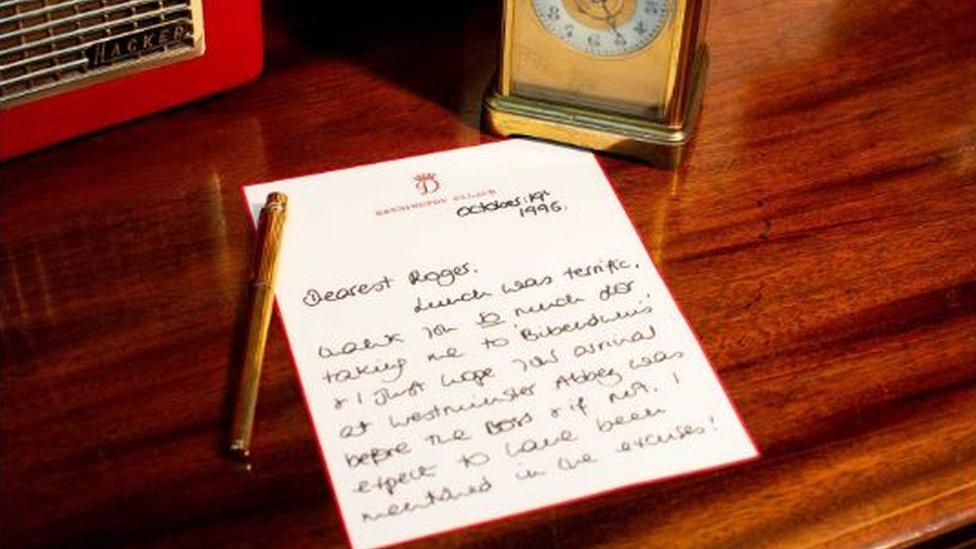 HACKER
D
KENSINGTON PALACE
October. 19th
1996.
Dearest Roger.
Lunch was terrific.
Thank you so much for
taking me to 'Bibendum's'
& I just hope your arrival
at Westminster Abbey was
before the Boss & if not. I
expect to have been
mentioned in the excuses!